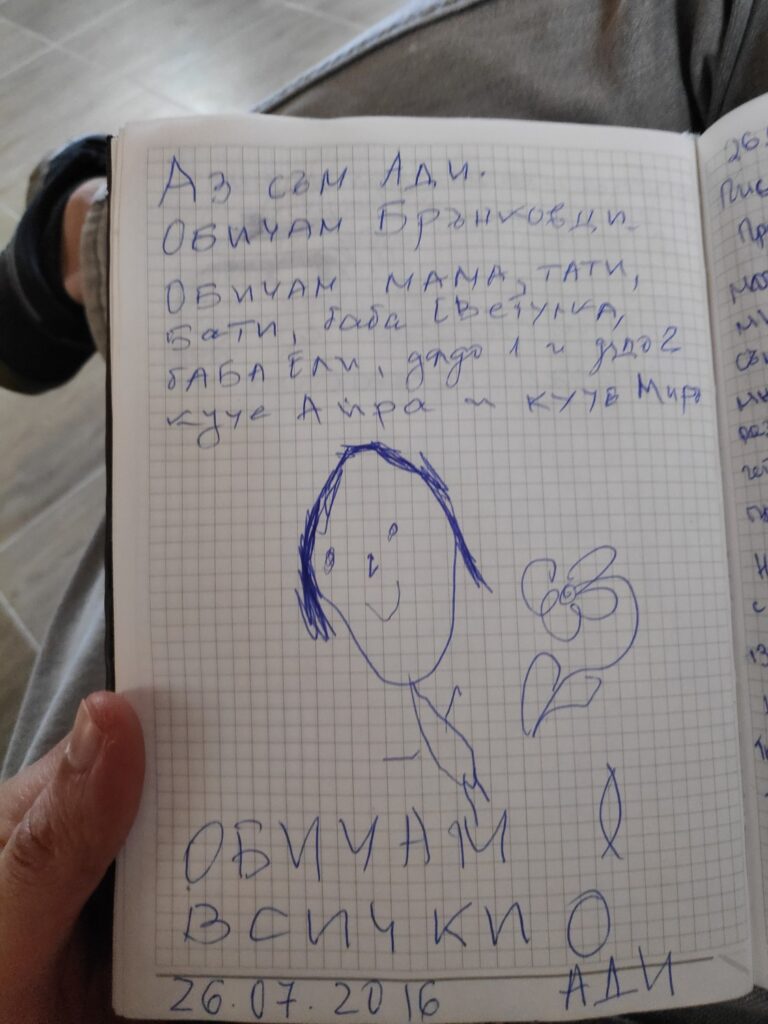 Аз съм Ади.
ОБИЧАМ Брънковци.
ОБИЧАМ МАМА, ТАТИ,
БАТИ, баба Светунка,
бАБА Ели, дядо 1 и дядо 2
куче Айра и куче
ОБИЧАМ
ВСИЧКИ
26.07.2016 АДИ